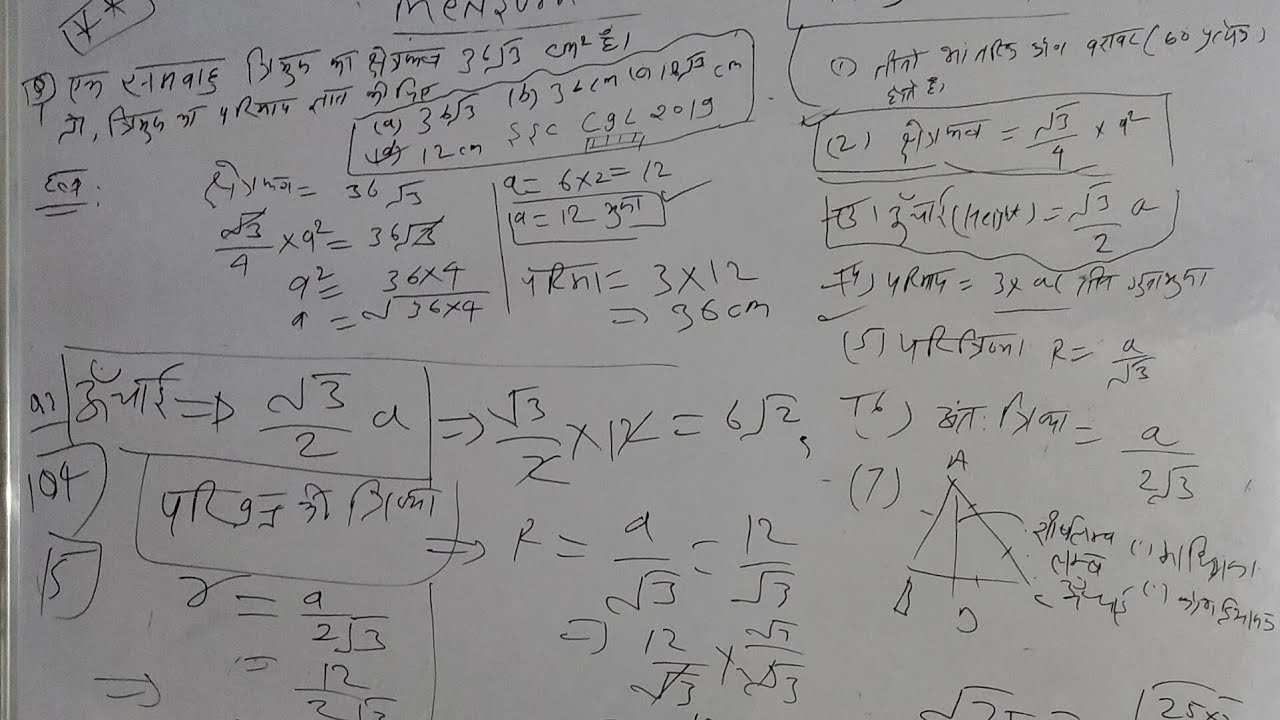 **
Mensura
(Q) एक समबाहु त्रिभुज का क्षेत्रफल 36√3 cm² है।
तो, त्रिभुज का परिमाप ज्ञात कीजिए
(a) 36√3 (b) 36cm (c) 12√3 cm
(d) 12cm SSC CGL 2019
हल:
क्षेत्रफल = 36√3
√3/4 × a² = 36√3
a² = 36×4
a = √36×4
a = 6×2 = 12
a = 12 भुजा
परिमा = 3×12
⇒ 36cm
(1) तीनो आंतरिक कोण बराबर (60 प्रत्येक)
होते है,
(2) क्षेत्रफल = √3/4 × a²
(3) ऊँचाई (Height) = √3/2 a
(4) परिमाप = 3×a तीन गुना भुजा
(5) परित्रिज्या R = a/√3
(6) अंत: त्रिज्या = a/2√3
(7)
A
B
D
C
शीर्षलम्ब
लम्ब
ऊँचाई
(1) माध्यिका
(1)
ऊँचाई ⇒ √3/2 a ⇒ √3/2 × 12 = 6√2,
104
15
परिवृत्त की त्रिज्या
⇒ R = a/√3 = 12/√3
⇒ 12/√3 × √3/√3
r = a/2√3
⇒ = 12/2√3